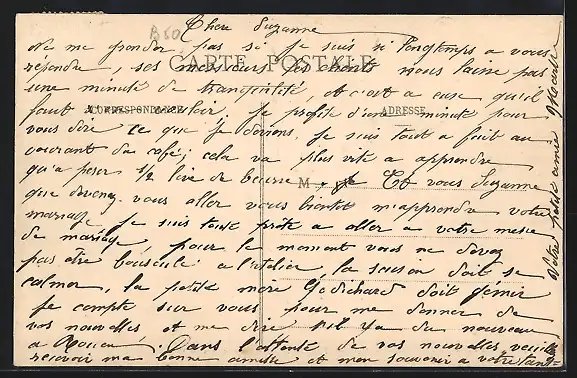 B50
Chere Suzanne
Ne me gronder pas si je suis si longtemps a vous
CARTE POSTALE
répondre, ses messieurs les clients nous laisse pas
une minute de tranquilité, et c'est a cause qu'il
faut vouloir, je profite d'une minute pour
CORRESPONDANCE
ADRESSE
vous dire ce que je deviens. Je suis tout a fait au
courant du café; cela va plus vite a apprendre
qu'a peser 1/2 livre de beurre. Et vous Suzanne
M
que devenez-vous aller vous bientot m'apprendre votre
mariage je suis toute prête a aller a votre messe
de mariage, pour le moment vous ne devez
pas être bousculé a l'atelier, la saison doit se
calmer, la petite mere doit gémir
Je compte sur vous pour me donner de
vos nouvelles et me dire s'il y a du nouveau
a Rouen. Dans l'attente de vos nouvelles, veuillez
recevoir ma bonne amitié et mon souvenir a votre
Votre petite amie